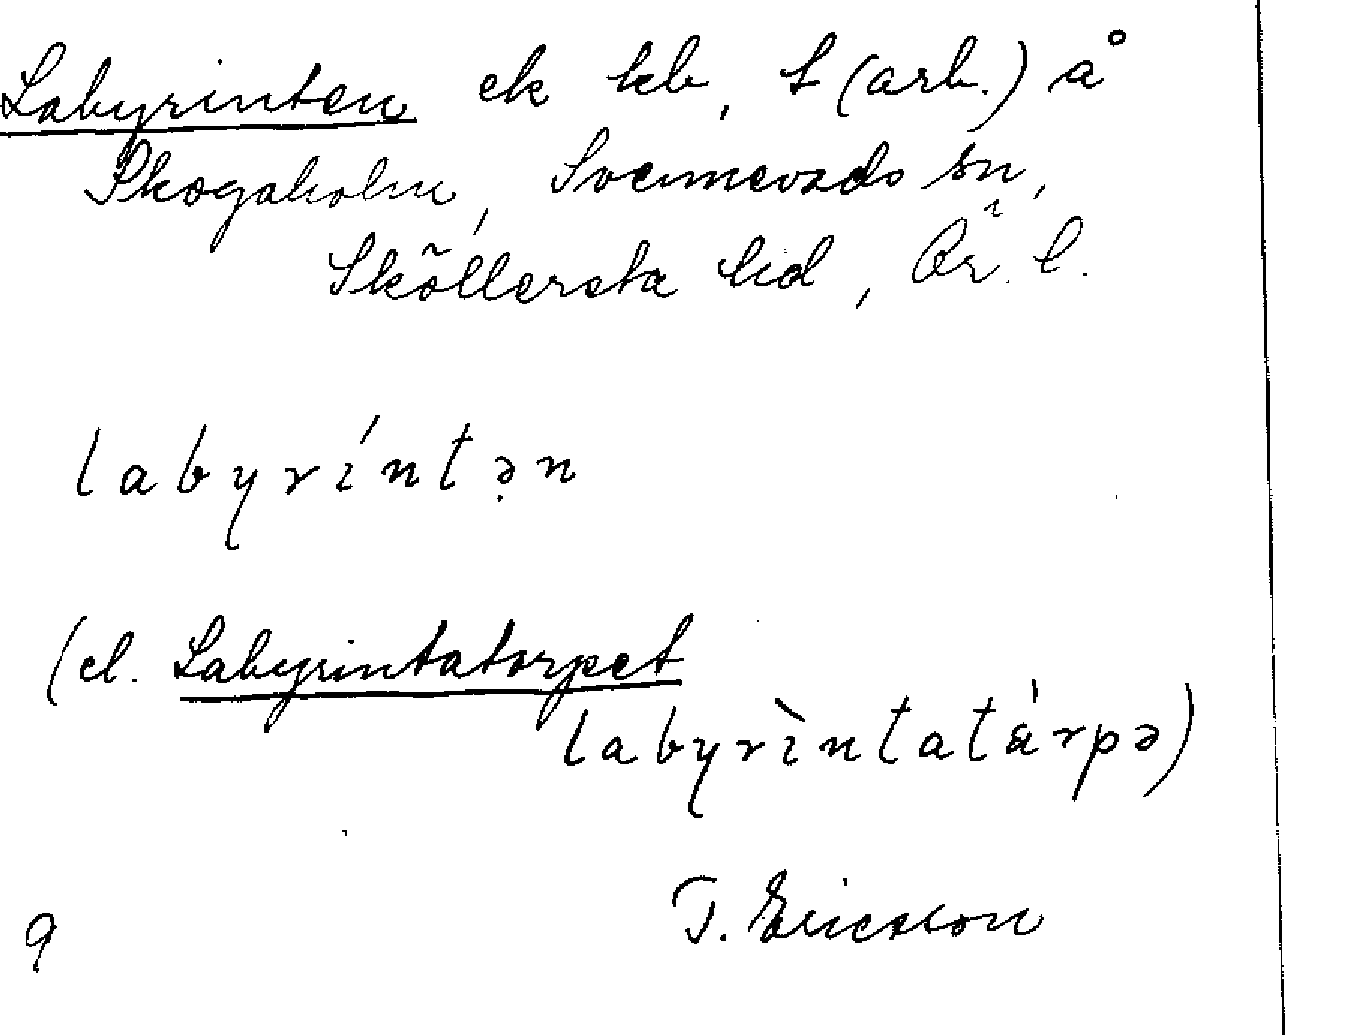 Labyrinten ek kb, t (arb.) å
Skogaholm, Svennevads sn,
Sköllersta hd, Ör. l.
labyríntən
(el. Labyrintatorpet
labyrìntatárpə)
T. Ericsson
9